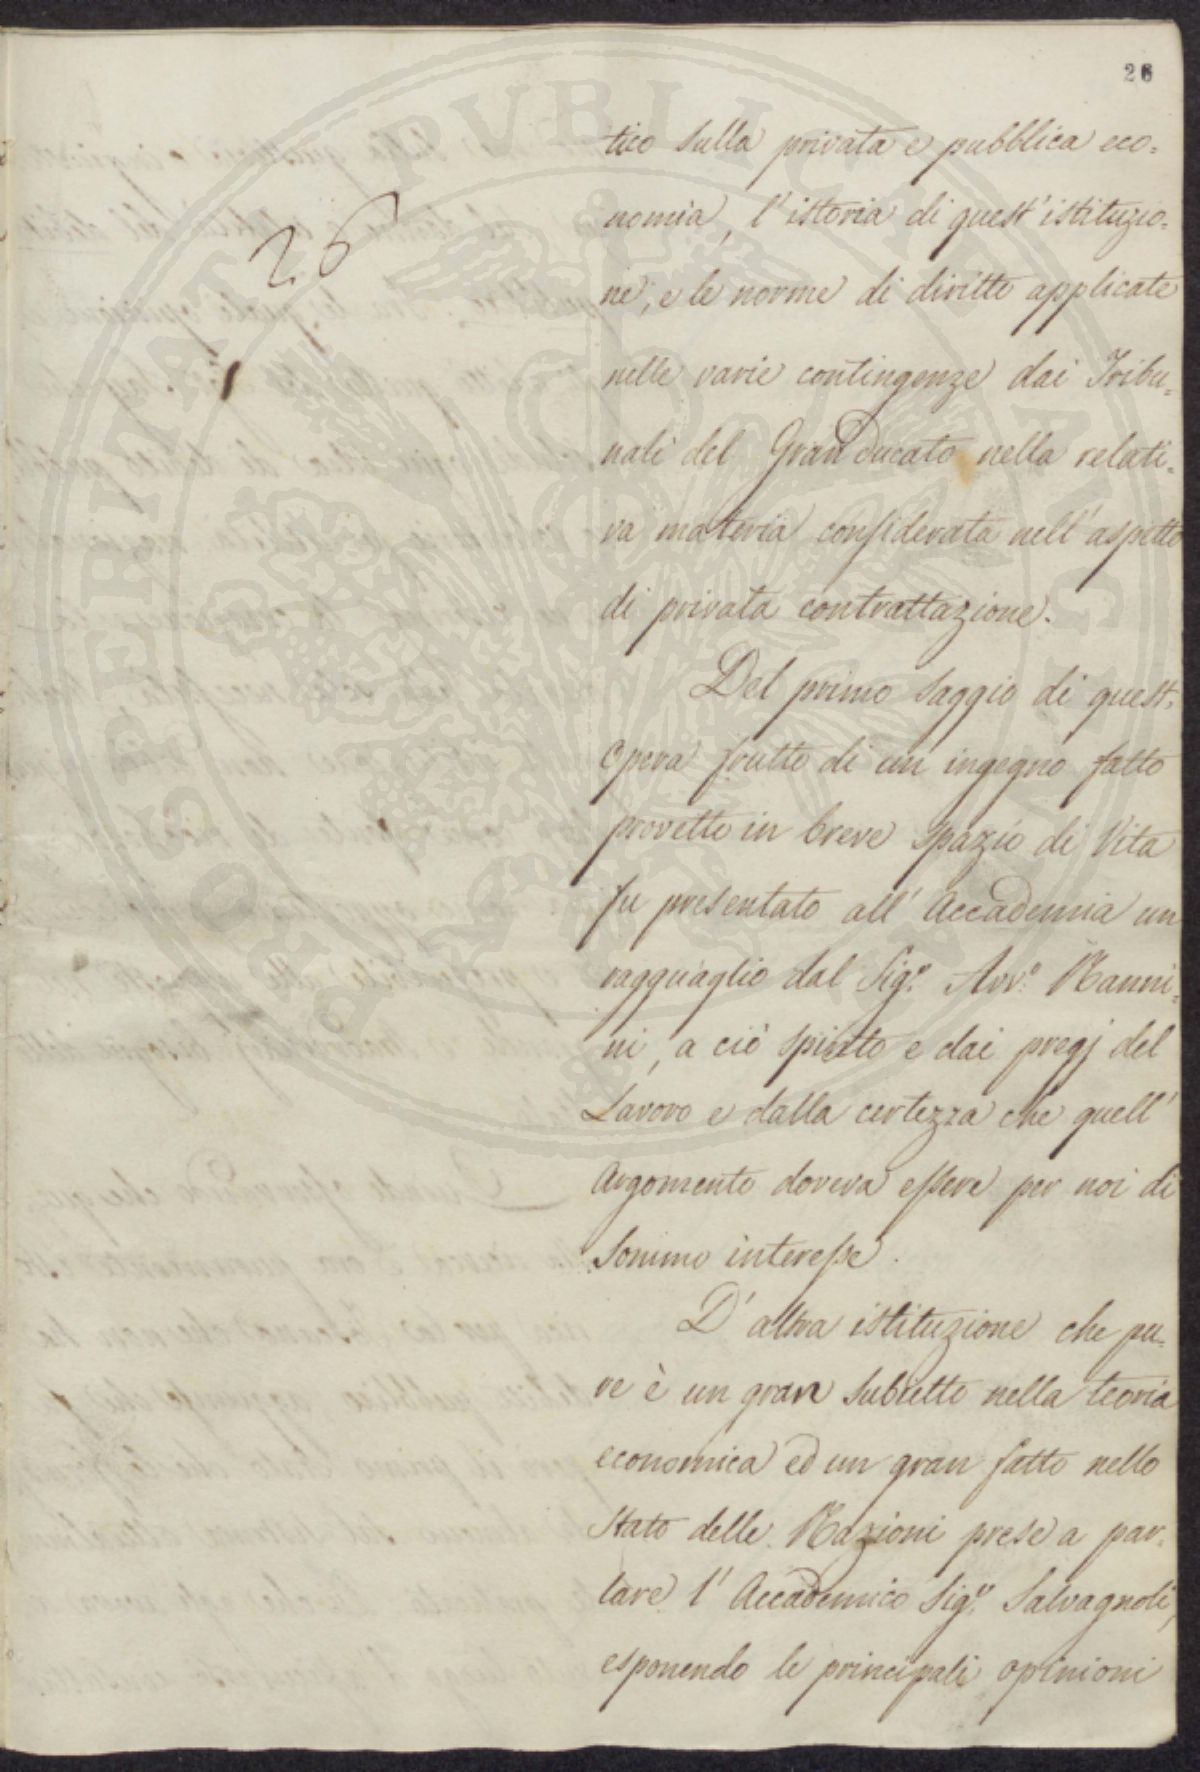 26
26
tico sulla privata e pubblica eco=
nomia, l'istoria di quest'istituzio=
ne, e le norme di diritto applicate
nelle varie contingenze dai Tribu=
nali del Gran Ducato nella relati=
va materia considerata nell'aspetto
di privata contrattazione.
Del primo saggio di quest'
Opera frutto di un ingegno fatto
provetto in breve spazio di Vita
fu presentato all'Accademia un
ragguaglio dal Sig.r Avv.o Nanni=
ni, a ciò spinto e dai pregj del
Lavoro e dalla certezza che quell'
Argomento doveva essere per noi di
Sommo interesse.
D'altra istituzione che pu=
re è un gran subietto nella teoria
economica ed un gran fatto nello
Stato delle Nazioni prese a par=
lare l'Accademico Sig.r Salvagnoli,
esponendo le principali opinioni
PROSPERITATI PUBLICAE AUGENDAE